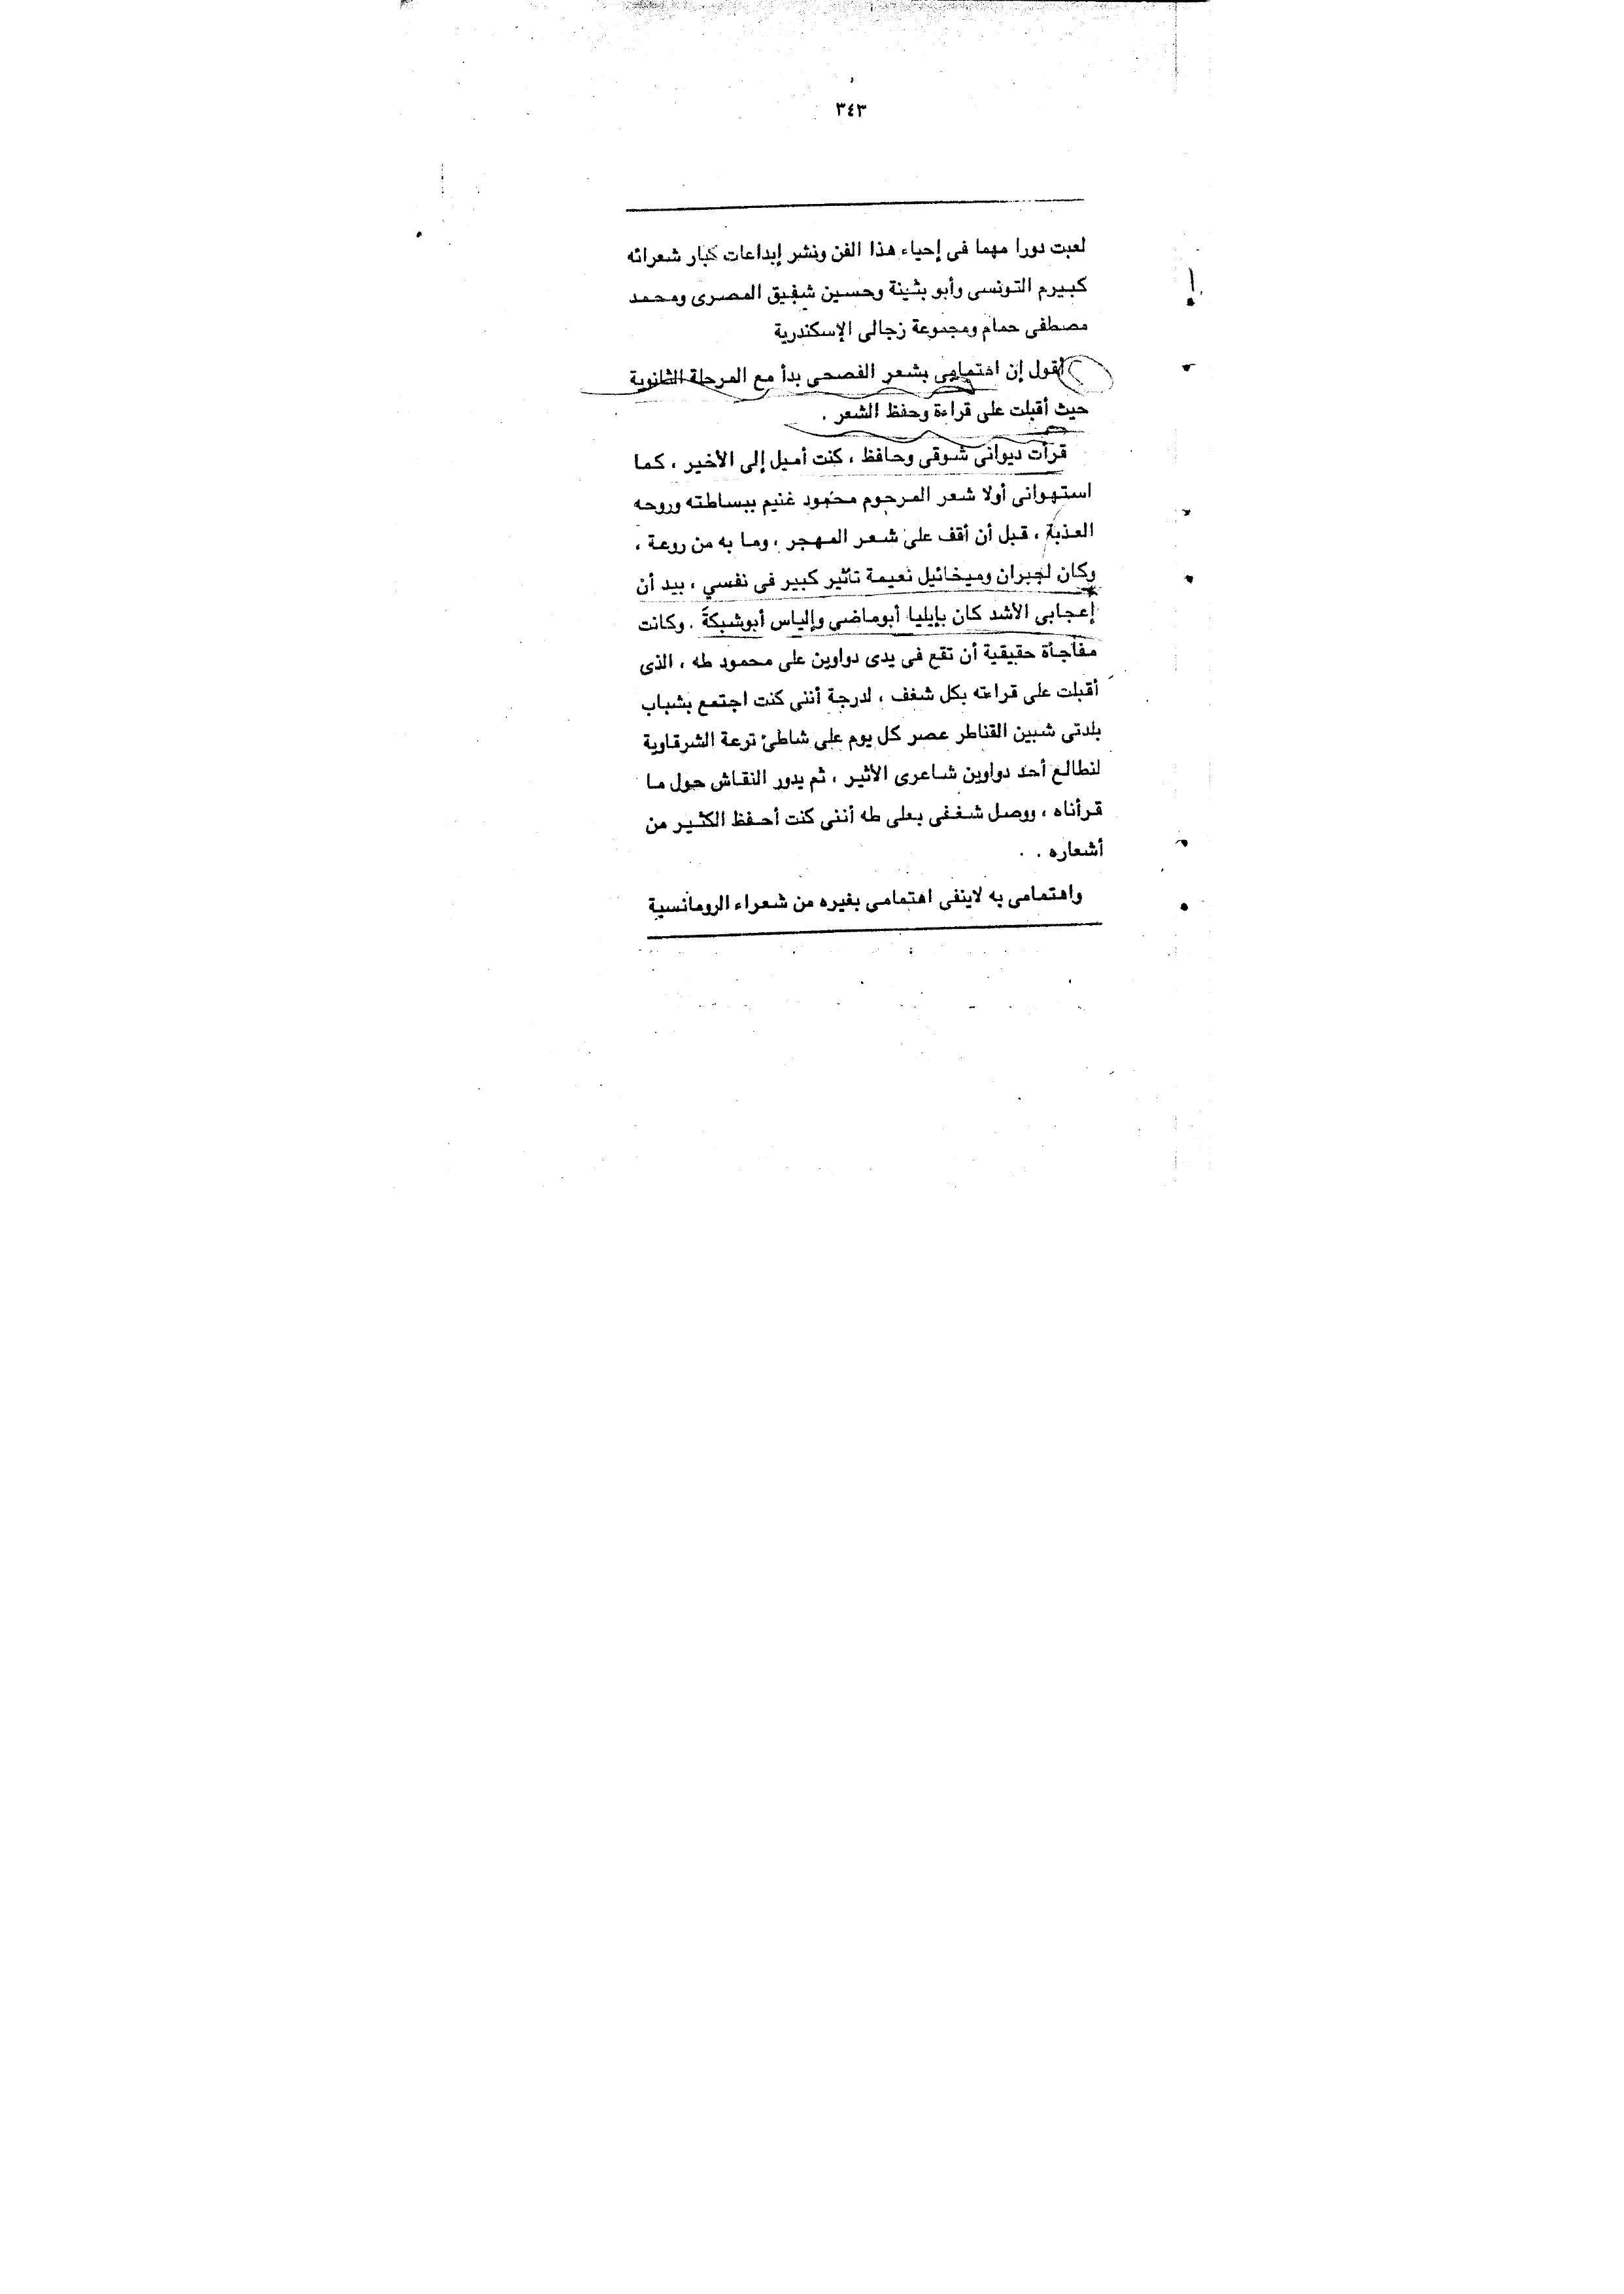 ٣٤٣
لعبت دورا مهما فى إحياء هذا الفن ونشر إبداعات كبار شعرائه
كبيرم التونسى وأبو بثينة وحسين شفيق المصرى ومحمد
مصطفى حمام ومجموعة زجالى الإسكندرية
أقول إن اهتمامى بشعر الفصحى بدأ مع المرحلة الثانوية
حيث أقبلت على قراءة وحفظ الشعر .
قرأت ديوانى شوقى وحافظ ، كنت أميل إلى الأخير ، كما
استهوانى أولا شعر المرحوم محمود غنيم ببساطته وروحه
العذبة ، قبل أن أقف على شعر المهجر ، وما به من روعة ،
وكان لجبران وميخائيل نعيمة تأثير كبير فى نفسي ، بيد أن
إعجابى الأشد كان بإيليا أبوماضى وإلياس أبوشبكة . وكانت
مفاجأة حقيقية أن تقع فى يدى دواوين على محمود طه ، الذى
أقبلت على قراءته بكل شغف ، لدرجة أننى كنت اجتمع بشباب
بلدتى شبين القناطر عصر كل يوم على شاطئ ترعة الشرقاوية
لنطالع أحد دواوين شاعرى الأثير ، ثم يدور النقاش حول ما
قرأناه ، ووصل شغفى بعلى طه أننى كنت أحفظ الكثير من
أشعاره . .
واهتمامى به لاينفى اهتمامى بغيره من شعراء الرومانسية